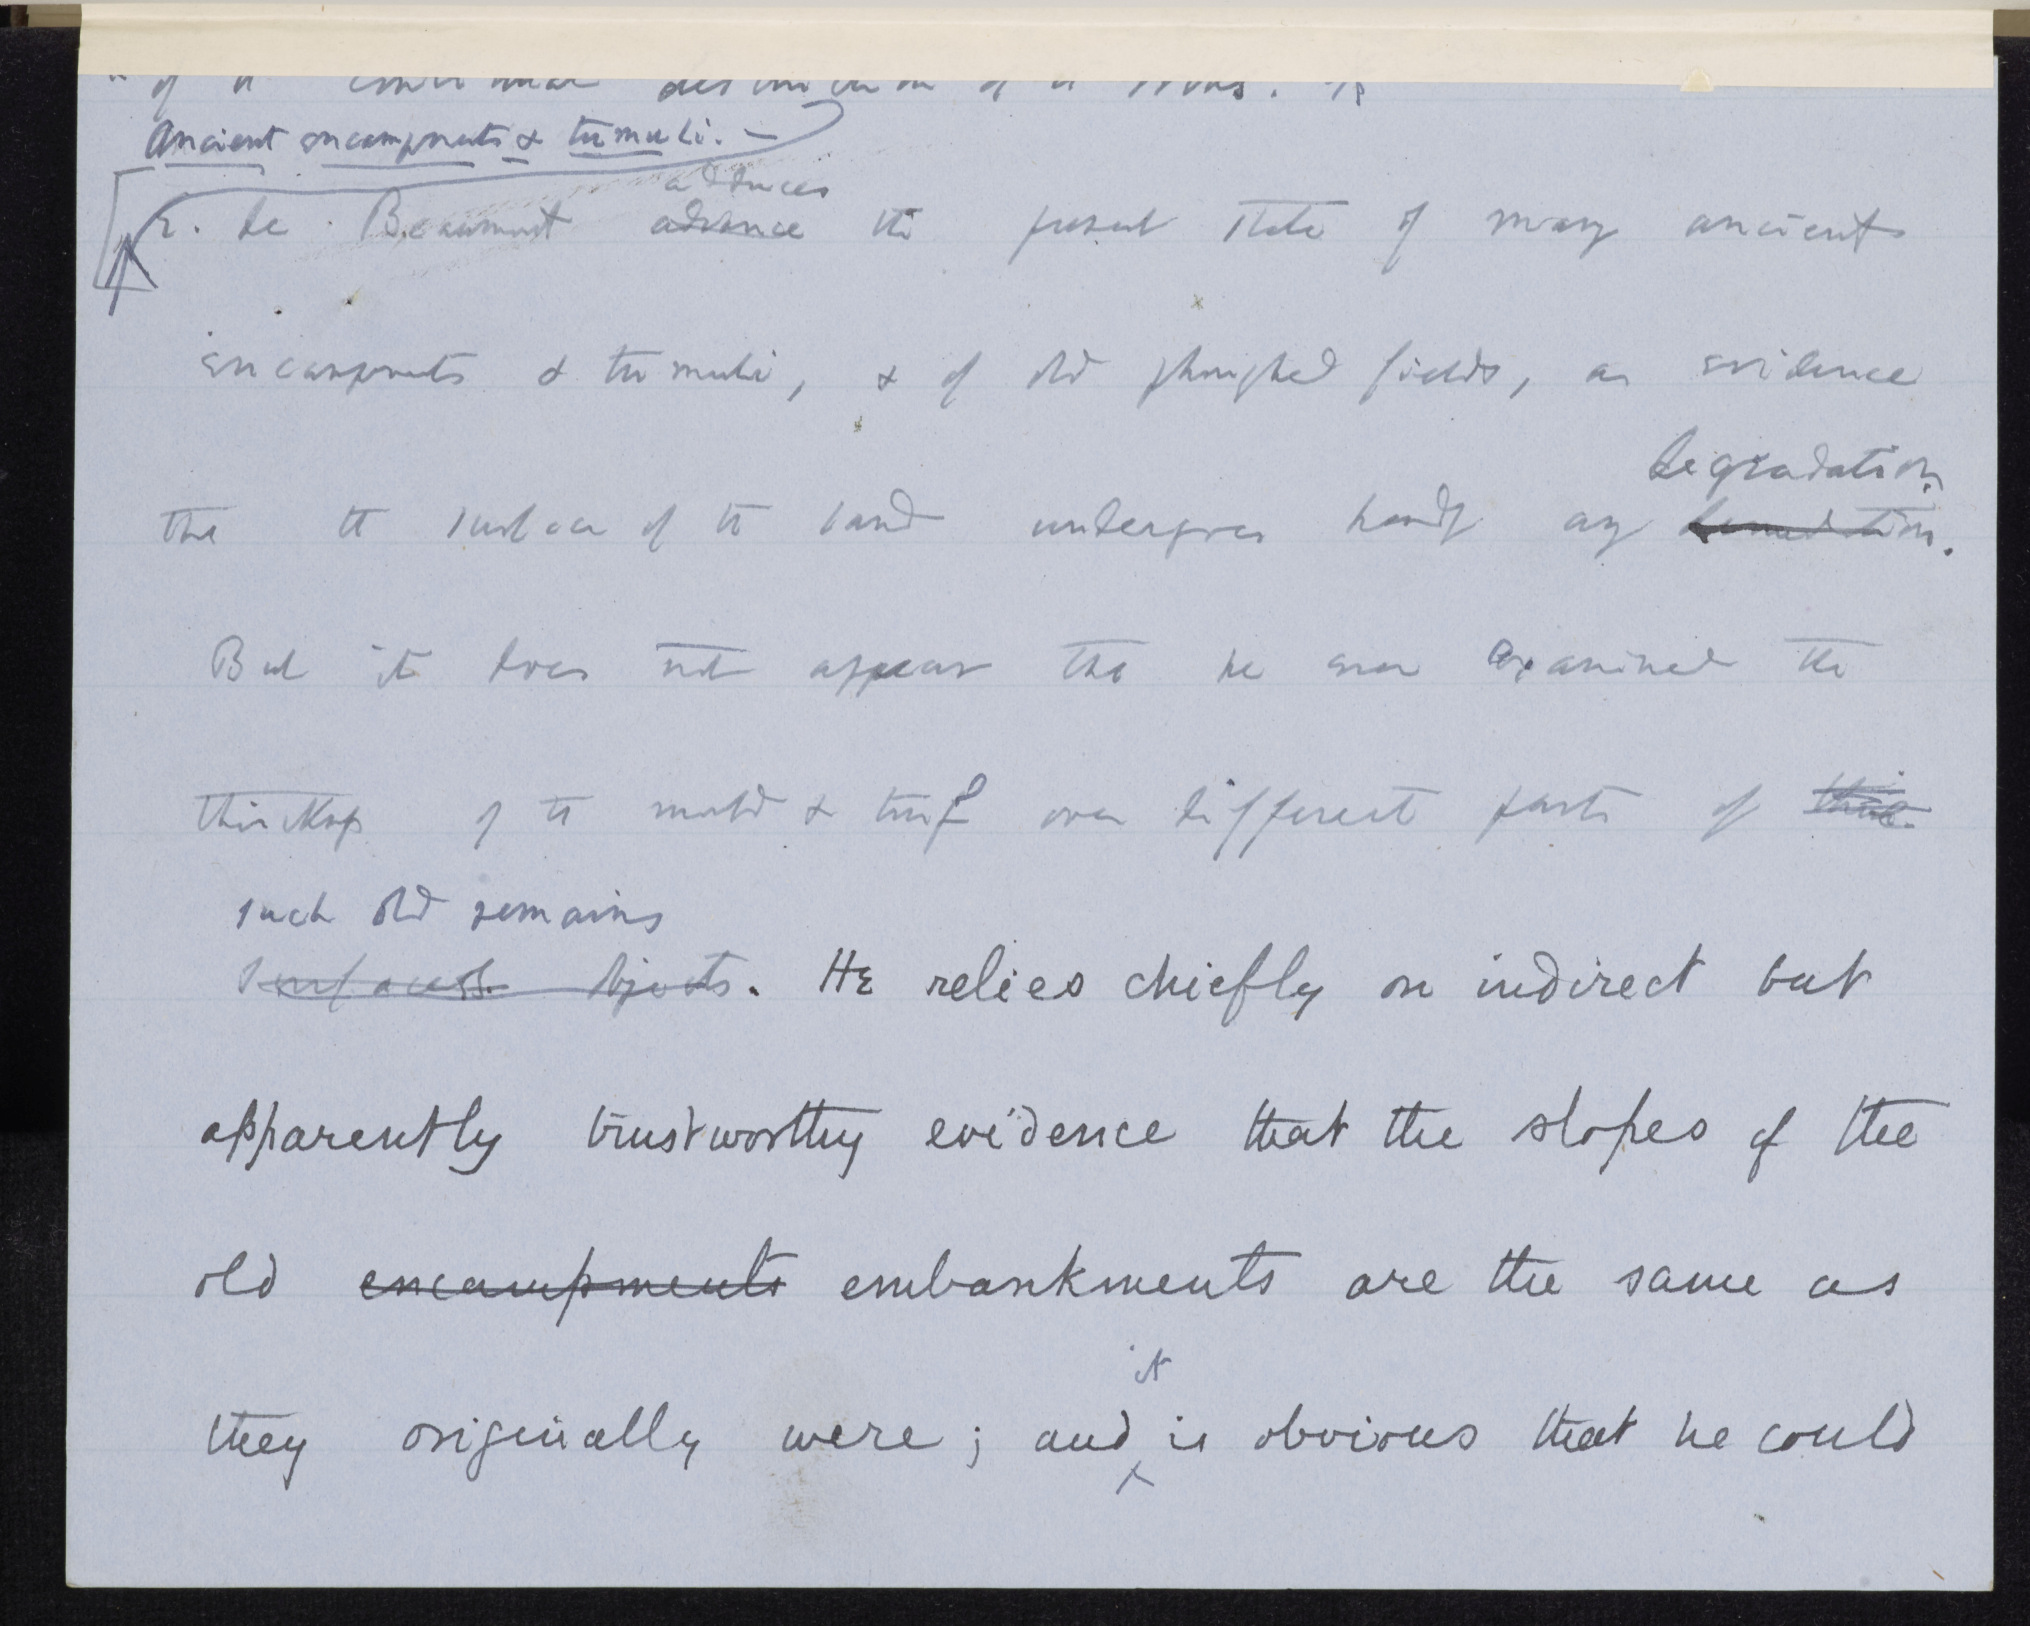 of the continual destruction of the rocks.
Ancient encampments & tumuli. —
adduces
E. de Beaumont advance the present state of many ancient
encampments & tumuli, & of old ploughed fields, as evidence
degradation.
that the surface of the land undergoes hardly any denudation.
But it does not appear that he ever examined the
thickness of the mould & turf over different parts of
such old remains
surfaces objects. He relies chiefly on indirect but
apparently trustworthy evidence that the slopes of the
old encampments embankments are the same as
it
they originally were; and is obvious that he could